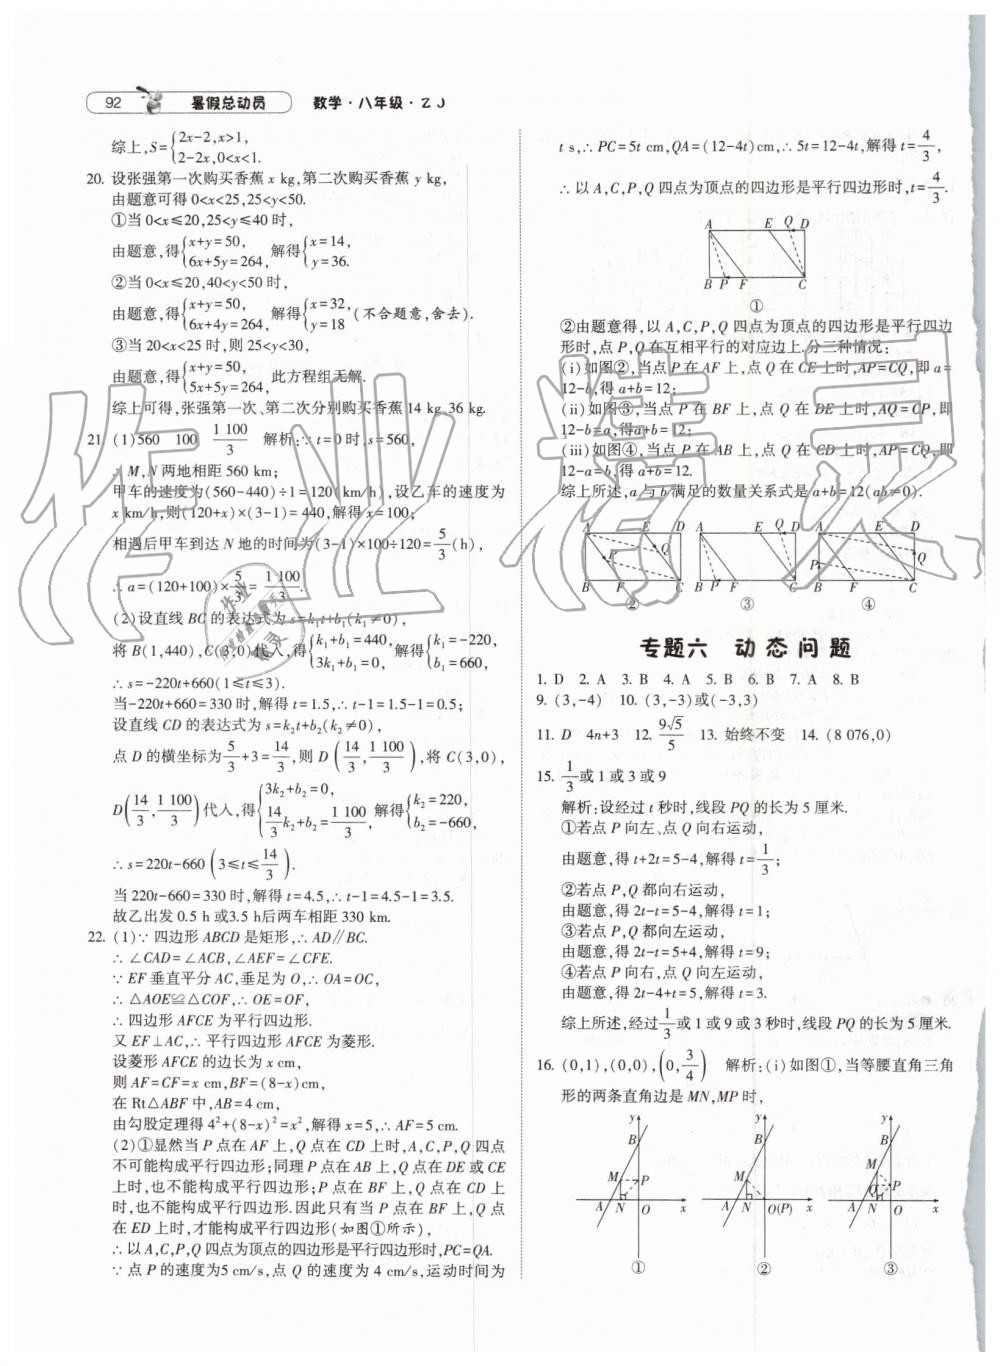 92 暑假总动员 数学·八年级·ZJ
综上,S={2x-2,x>1,
2-2x,0<x<1.
20. 设张强第一次购买香蕉 x kg,第二次购买香蕉 y kg,
由题意可得 0<x<25,25<y<50.
①当 0<x≤20,25<y≤40 时,
由题意,得{x+y=50, 6x+5y=264, 解得{x=14, y=36.
②当 0<x≤20,40<y<50 时,
由题意,得{x+y=50, 6x+4y=264, 解得{x=32, y=18 (不合题意,舍去).
③当 20<x<25 时,则 25<y<30,
由题意,得{x+y=50, 5x+5y=264, 此方程组无解.
综上可得,张强第一次、第二次分别购买香蕉 14 kg,36 kg.
21. (1)560 100 1 100/3 解析:∵t=0时,s=560,
∴M,N 两地相距 560 km;
甲车的速度为(560-440)÷1=120(km/h),设乙车的速度为
x km/h,则(120+x)×(3-1)=440,解得 x=100;
相遇后甲车到达 N 地的时间为(3-1)×100÷120=5/3(h),
∴a=(120+100)×5/3=1 100/3.
(2)设直线 BC 的表达式为 s=k₁t+b₁(k₁≠0),
将 B(1,440),C(3,0)代入,得{k₁+b₁=440, 3k₁+b₁=0, 解得{k₁=-220, b₁=660,
∴s=-220t+660(1≤t≤3).
当-220t+660=330 时,解得 t=1.5,∴t-1=1.5-1=0.5;
设直线 CD 的表达式为 s=k₂t+b₂(k₂≠0),
点 D 的横坐标为5/3+3=14/3,则 D(14/3,1 100/3),将 C(3,0),
D(14/3,1 100/3)代入,得{3k₂+b₂=0, 14/3k₂+b₂=1 100/3, 解得{k₂=220, b₂=-660,
∴s=220t-660(3≤t≤14/3).
当 220t-660=330 时,解得 t=4.5,∴t-1=4.5-1=3.5.
故乙出发 0.5 h 或3.5 h后两车相距 330 km.
22. (1)∵四边形 ABCD 是矩形,∴AD∥BC.
∴∠CAD=∠ACB,∠AEF=∠CFE.
∵EF 垂直平分 AC,垂足为 O,∴OA=OC,
∴△AOE≌△COF,∴OE=OF,
∴四边形 AFCE 为平行四边形.
又 EF⊥AC,∴平行四边形 AFCE 为菱形.
设菱形 AFCE 的边长为 x cm,
则 AF=CF=x cm,BF=(8-x)cm,
在 Rt△ABF 中,AB=4 cm,
由勾股定理得 4²+(8-x)²=x²,解得 x=5,∴AF=5 cm.
(2)①显然当 P 点在 AF 上,Q 点在 CD 上时,A,C,P,Q 四点
不可能构成平行四边形;同理 P 点在 AB 上,Q 点在 DE 或 CE
上时,也不可能构成平行四边形;P 点在 BF 上,Q 点在 CD 上
时,也不可能构成平行四边形.因此只有当 P 点在 BF 上,Q 点
在 ED 上时,才能构成平行四边形(如图①所示),
∴以 A,C,P,Q 四点为顶点的四边形是平行四边形时,PC=QA.
∵点 P 的速度为5 cm/s,点 Q 的速度为 4 cm/s,运动时间为
t s,∴PC=5t cm,QA=(12-4t)cm,∴5t=12-4t,解得t=4/3,
∴以 A,C,P,Q 四点为顶点的四边形是平行四边形时,t=4/3.
A E Q D
B P F C
①
②由题意得,以 A,C,P,Q 四点为顶点的四边形是平行四边
形时,点 P,Q 在互相平行的对应边上.分三种情况:
(i)如图②,当点 P 在 AF 上,点 Q 在 CE 上时,AP=CQ,即 a=
12-b,得 a+b=12;
(ii)如图③,当点 P 在 BF 上,点 Q 在 DE 上时,AQ=CP,即
12-b=a,得a+b=12;
(iii)如图④,当点 P 在 AB 上,点 Q 在 CD 上时,AP=CQ,即
12-a=b,得 a+b=12.
综上所述,a 与 b 满足的数量关系式是 a+b=12(ab≠0).
A E D A E Q D A E D
P Q P Q
B F C B P F C B F C
② ③ ④
专题六 动态问题
1. D 2. A 3. B 4. A 5. B 6. B 7. A 8. B
9. (3,-4) 10. (3,-3)或(-3,3)
11. D 4n+3 12. 9√5/5 13. 始终不变 14. (8 076,0)
15. 1/3或 1 或 3 或 9
解析:设经过 t 秒时,线段 PQ 的长为 5 厘米.
①若点 P 向左、点 Q 向右运动,
由题意,得 t+2t=5-4,解得 t=1/3;
②若点 P,Q 都向右运动,
由题意,得 2t-t=5-4,解得 t=1;
③若点 P,Q 都向左运动,
由题意,得 2t-t=5+4,解得 t=9;
④若点 P 向右,点 Q 向左运动,
由题意,得 2t-4+t=5,解得 t=3.
综上所述,经过1/3或 1 或 9 或 3 秒时,线段 PQ 的长为 5 厘米.
16. (0,1),(0,0),(0,3/4) 解析:(i)如图①,当等腰直角三角
形的两条直角边是 MN,MP 时,
y y y
B B B
M P M M P Q
A N O x A N O(P) x A N O x
① ② ③
作业精灵